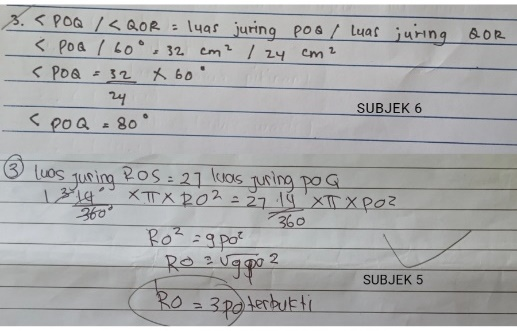 3. < POQ / < QOR = luas juring POQ / luas juring QOR
< POQ / 60° = 32 cm² / 24 cm²
< POQ = 32/24 × 60°
< POQ = 80°
SUBJEK 6
③ luas juring ROS = 27 luas juring POQ
× π × RO² = 27 14/360 × π × PO²
RO² = 9 PO²
RO = 3 PO terbukti
SUBJEK 5